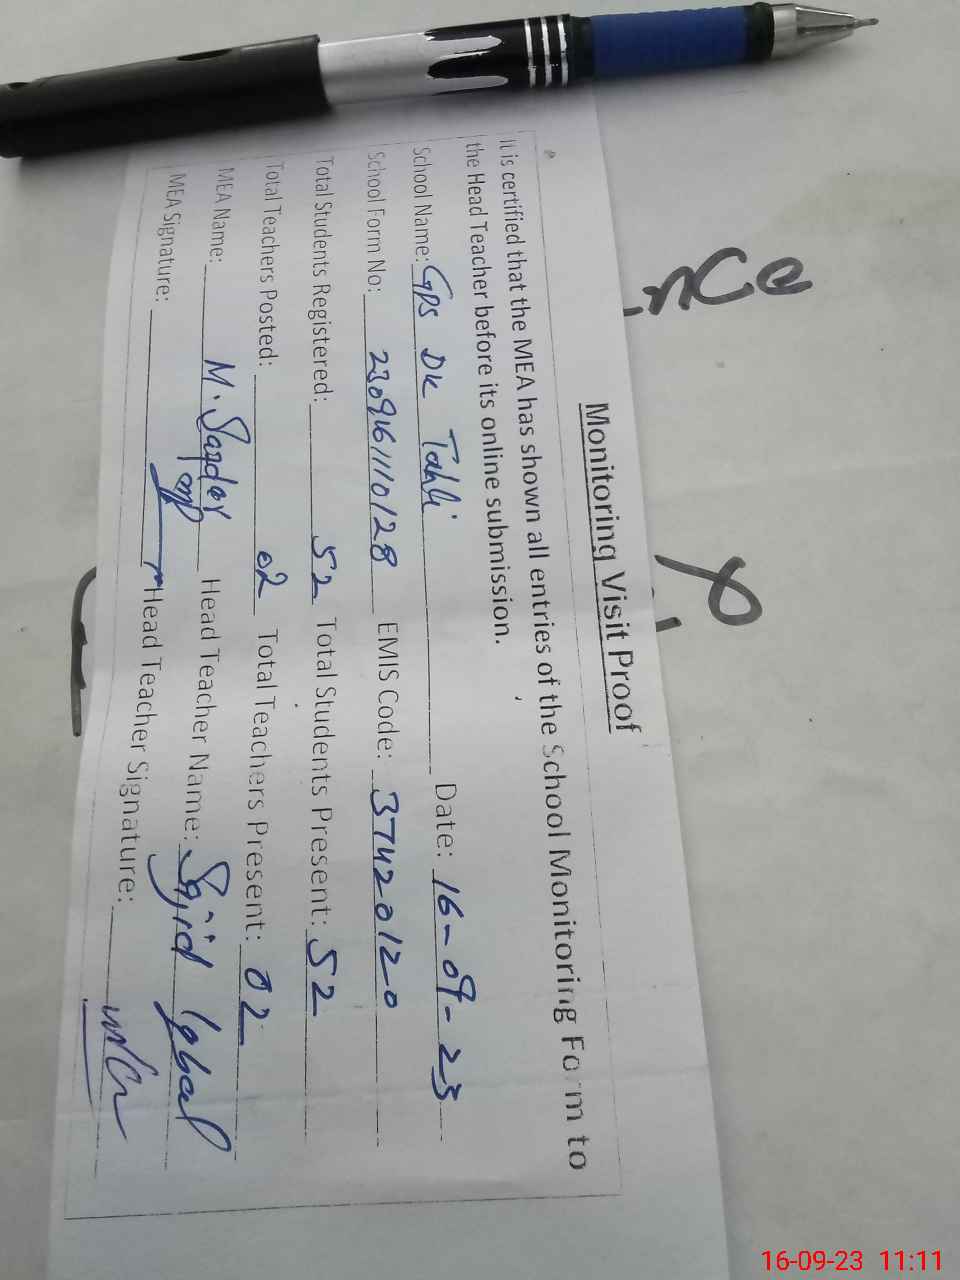 Monitoring Visit Proof
It is certified that the MEA has shown all entries of the School Monitoring Form to
the Head Teacher before its online submission.
School Name: GPS DK Tahli Date: 16-09-23
School Form No: EMIS Code: 37420120
Total Students Registered: 52 Total Students Present: 52
Total Teachers Posted: 02 Total Teachers Present: 02
MEA Name: M. Head Teacher Name: Sajid Iqbal
MEA Signature: Head Teacher Signature:
16-09-23 11:11